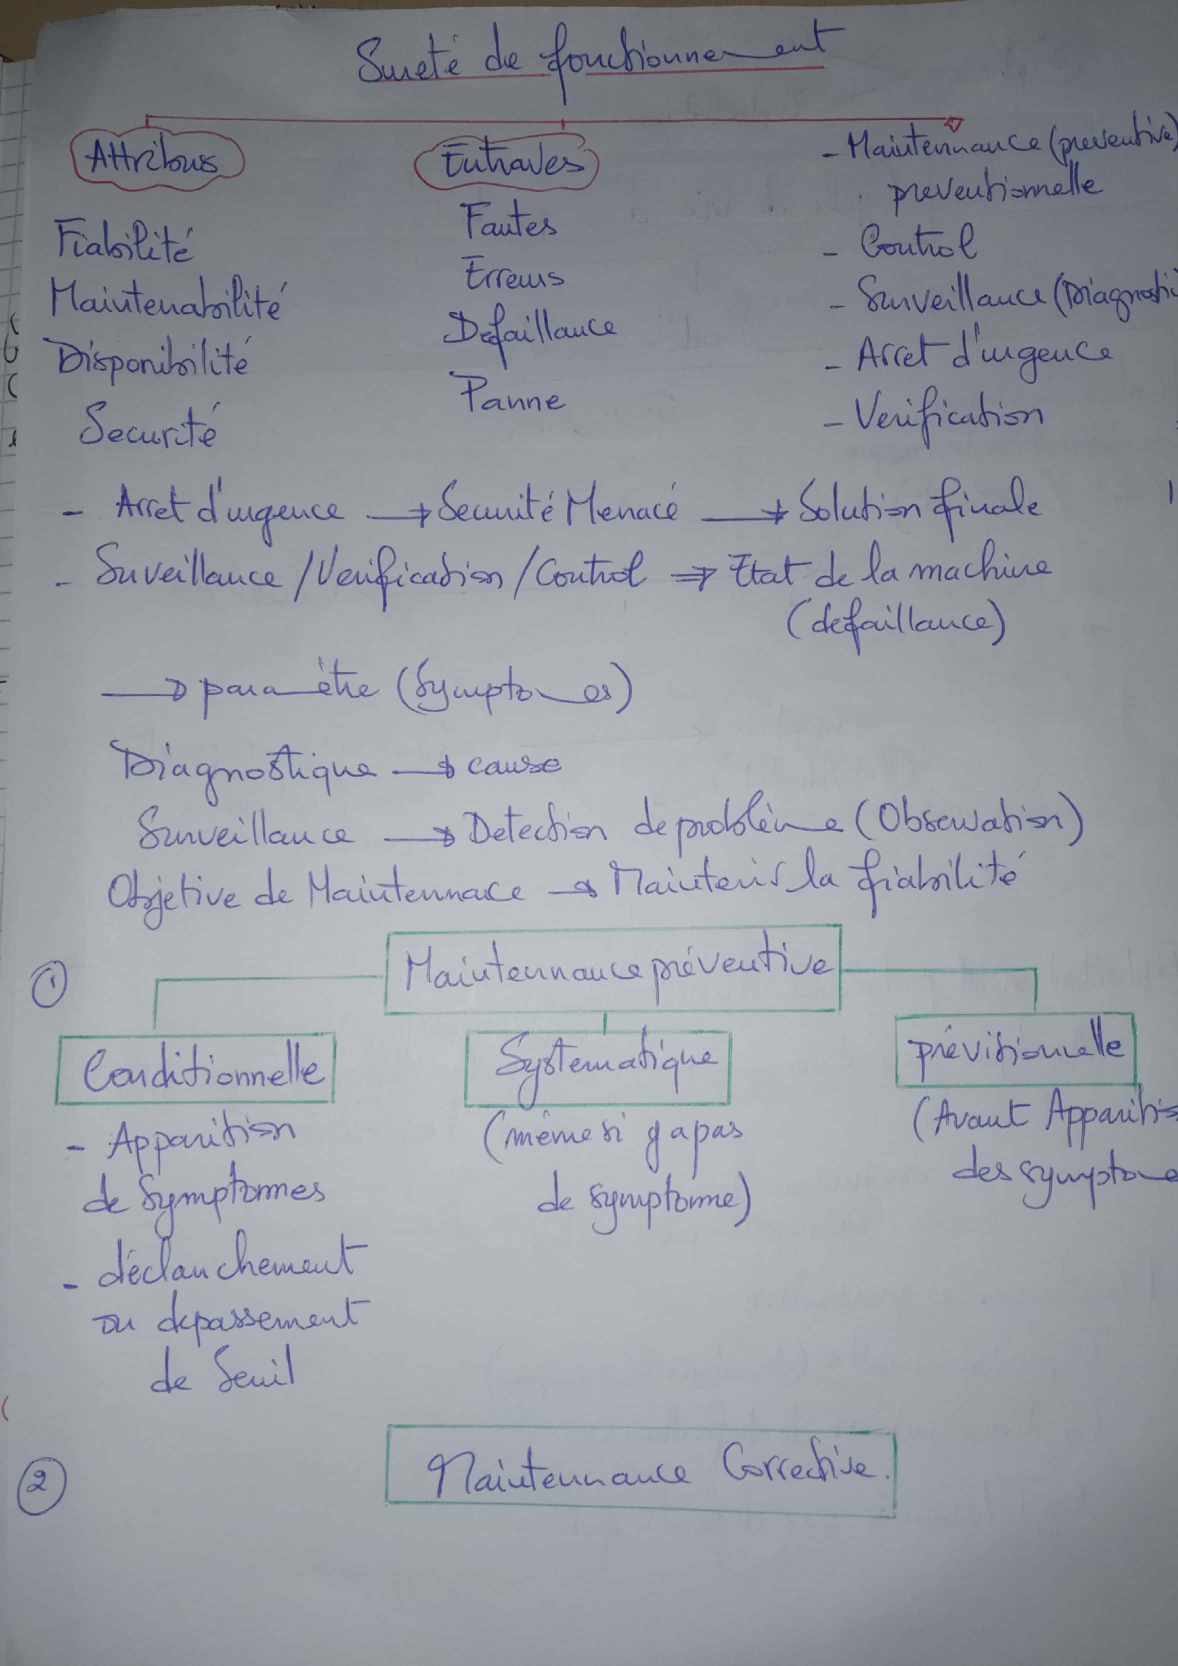 Sureté de fonctionnement
Attribus
Fiabilité
Maintenabilité
Disponibilité
Securité
Entraves
Fautes
Erreurs
Defaillance
Panne
- Maintennance (preventive)
preventionnelle
- Control
- Surveillance (Diagnosti
- Arret d'urgence
- Verification
- Arret d'urgence → Securité Menacé → Solution finale
- Surveillance / Verification / Control ⇒ Etat de la machine
(defaillance)
→ paramètre (Symptomes)
Diagnostique → cause
Surveillance → Detection de problème (Observation)
Objetive de Maintennace → Maintenir la fiabilité
① Maintennance préventive
Conditionnelle
- Apparition
de Symptommes
- déclanchement
ou depassement
de Seuil
Systematique
(même si y a pas
de symptomme)
prévisionnelle
(Avant Apparitio
des symptome
② Maintennance Corrective.